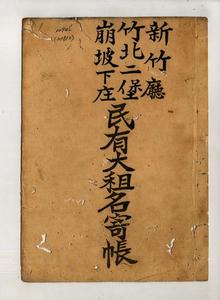 新竹廳
竹北二堡
崩坡下庄
民有大租名寄帳